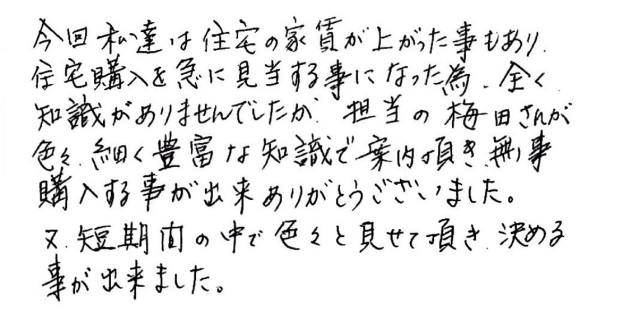 今回私達は住宅の家賃が上がった事もあり、
住宅購入を急に見当する事になった為、全く
知識がありませんでしたが、担当の梅田さんが
色々、細く豊富な知識で案内頂き、無事
購入する事が出来ありがとうございました。
又、短期間の中で色々と見せて頂き、決める
事が出来ました。